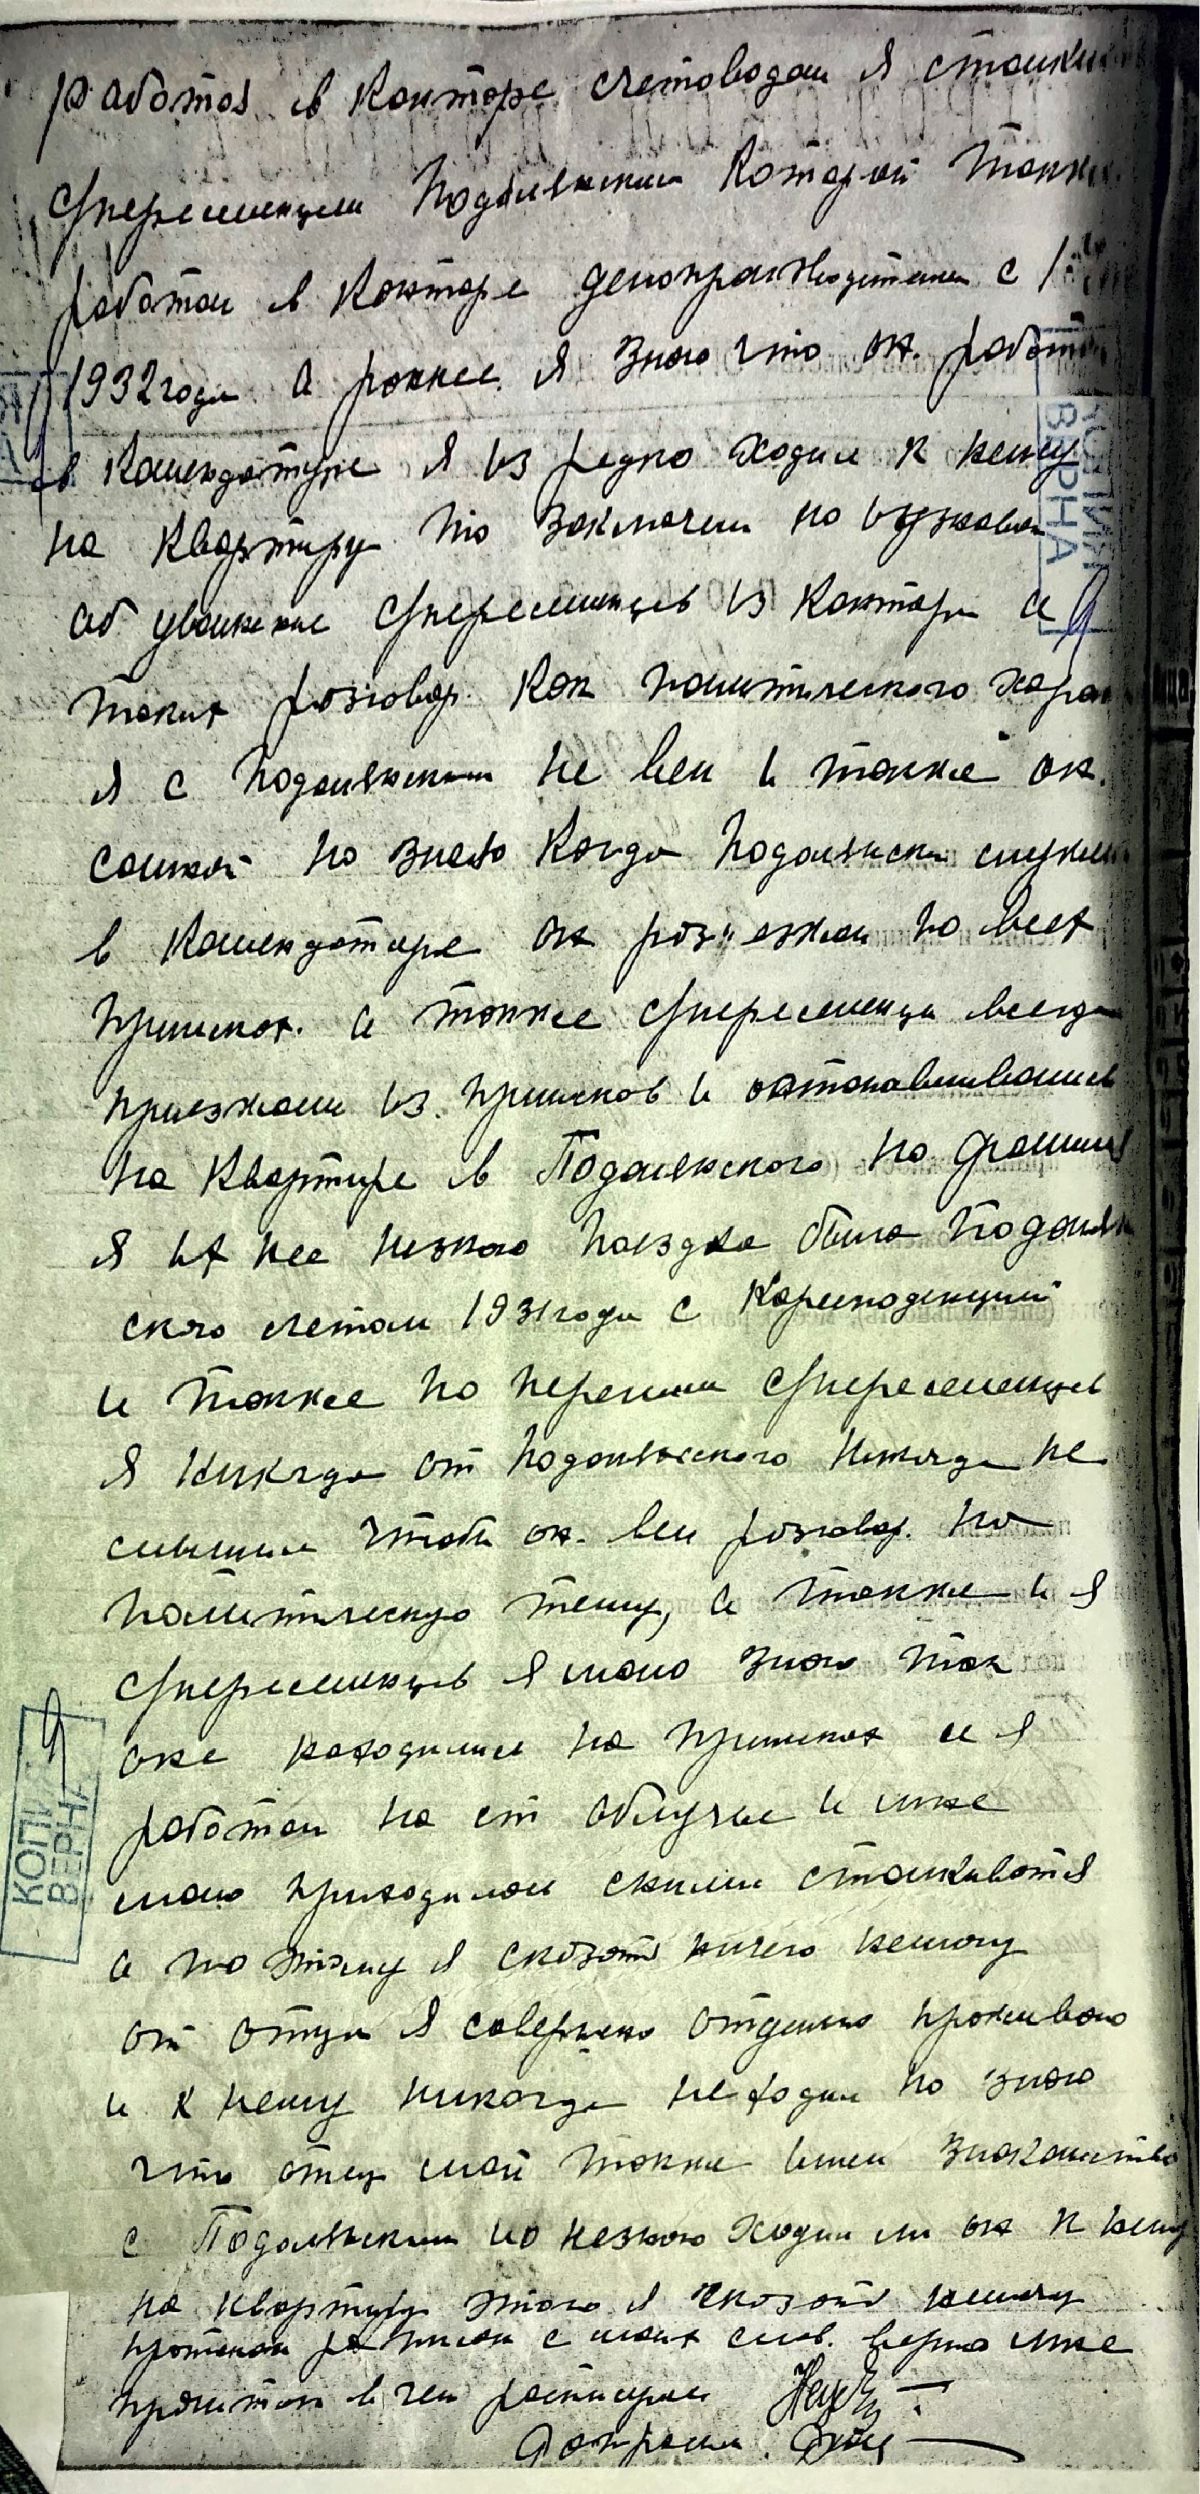 Работая в конторе счетоводом я сталки
спереселенцем Подолянским который также
работал в конторе делопроизводителем с
1932 года а ранее я знаю что он. работ
в комендатуре я из редко ходил к нему
на квартиру по
об спереселенцев из конторы а
таких разговор. как политического харак
я с Подолянским не вел и также он.
самой но знаю когда Подолянски служил
в комендатуре он раз"езжал по всех
приисках. а также спереселенцы всегда
приезжали из. приисков и остонавливались
на квартире в Подолянского но фамилия
я их не незнаю поездка была Подолян
ского летом 1931 года с Коресподенцией
и также по спереселенцев
я никагда от Подолянского никагда не
слышал чтобы он. вел разговор. на
политическую тему, а также и я
спереселенцев я мало знаю так
оне находились на приисках а я
работал на ст облучье и мне
мало приходилось сними сталкиватся
а по этому я сказать ничего немогу
от отца я совершено отдельно проживаю
и к нему никогда не ходил но знаю
что отец мой также имел знакомство
с Подолянским но незнаю ходил ли он к нему
на квартиру этого я сказать немогу
протокол записан с моих слов. верно мне
прочитан в чем расписуюсь
Допросил.
КОПИЯ
ВЕРНА
КОПИЯ
ВЕРНА